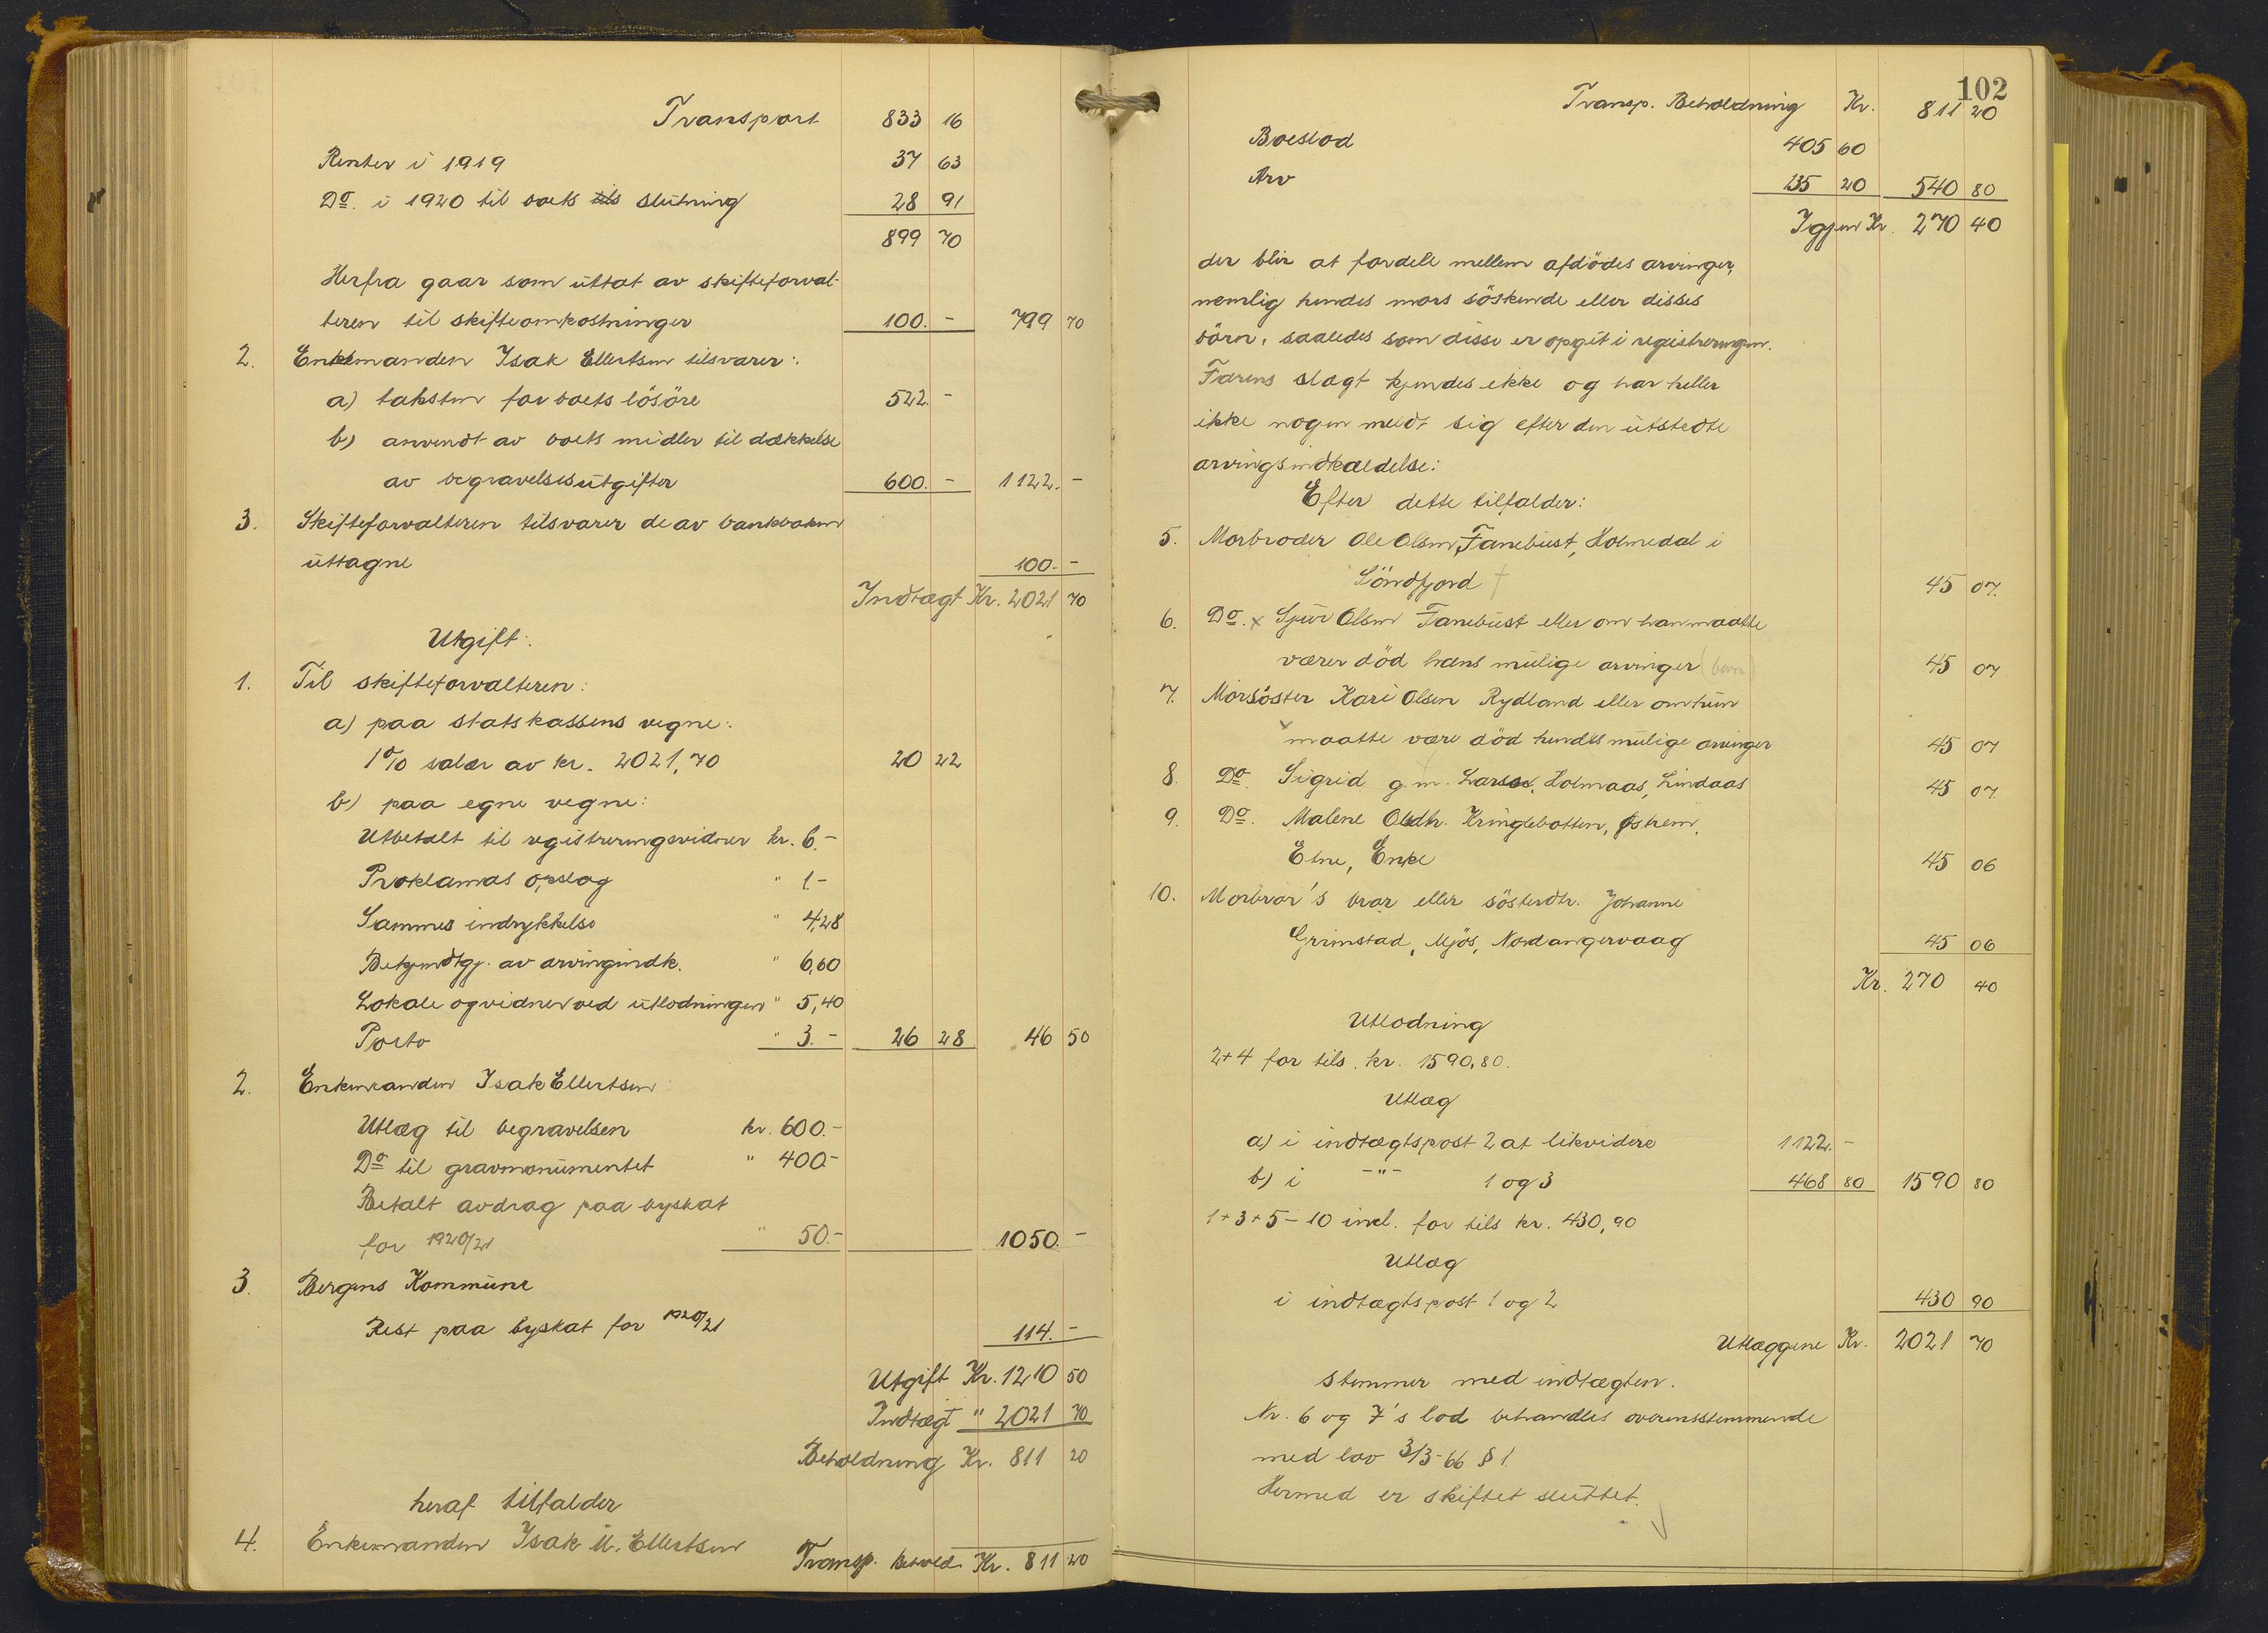 Transport 833 16
Renter i 1919 37 63
Do. i 1920 til boets tils slutning 28 91
899 70
Herfra gaar som uttat av skifteforval-
teren til skifteomkostninger 100.- 799 70
2. Enkemanden Isak Ellertsen tilsvarer:
a) taksten for boets lösöre 522.-
b) anvendt av boets midler til dækkelse
av begravelsesutgifter 600.- 1122.-
3. Skifteforvalteren tilsvarer de av bankboken
uttagne 100.-
Indtægt Kr. 2021 70
Utgift:
1. Til skifteforvalteren:
a) paa statskassens vegne:
1% salær av kr. 2021,70 20 22
b) paa egne vegne:
Utbetalt til registreringsvidner kr. 6.-
Proklamas opslag " 1-
Sammes indrykkelse " 4,28
Bekjendtgj. av arvingindk. " 6,60
Lokale og vidner ved utlodningen " 5,40
Porto " 3.- 26 28 46 50
2. Enkemanden Isak Ellertsen:
Utlæg til begravelsen kr. 600.-
Do til gravmonumentet " 400-
Betalt avdrag paa byskat
for 1920/21 " 50.- 1050.-
3. Bergens Kommune
Rest paa byskat for 1920/21 114.-
Utgift Kr. 1210 50
Indtægt " 2021 70
Beholdning Kr. 811 20
heraf tilfalder
4. Enkemanden Isak M. Ellertsen
Transp. Behold. Kr. 811 20
102
Transp. Beholdning Kr. 811 20
Boeslod 405 60
Arv 135 20 540 80
Igjen Kr. 270 40
der blir at fordele mellem afdödes arvinger,
nemlig hendes mors söskende eller disses
börn, saaledes som disse er opgit i registreringen.
Farens slagt kjendes ikke og har heller
ikke nogen meldt sig efter den utstedte
arvingsindkaldelse:
Efter dette tilfalder:
5. Morbroder Ole Olsen Fanebust, Holmedal i
Söndfjord † 45 07.
6. Do. x Sjur Olsen Fanebust eller om han maatte
værer död hans mulige arvinger (barn) 45 07
7. Morsöster Kari Olsen Rydland eller om hun
x maatte være död hendes mulige arvinger 45 07
8. Do. Sigrid g. m. Lars Holmaas, Lindaas 45 07.
9. Do. Malene Olsdtr. Kringlebotten, Östrem,
Etne, Enke 45 06
10. Morbror's bror eller söster dtr. Johanne
Grimstad, Mjös, Nordangervaag 45 06
Kr. 270 40
Utlodning
2+4 for tils. kr. 1590,80.
Utlæg
a) i indtægtspost 2 at likvidere 1122.-
b) i -"- 1 og 3 468 80 1590 80
1+3+5-10 incl. for tils kr. 430,90
Utlæg
i indtægtspost 1 og 2 430 90
Utlæggene Kr. 2021 70
stemmer med indtægten.
Nr. 6 og 7's lod behandles overensstemmende
med lov 3/3-66 § 1.
Hermed er skiftet sluttet.